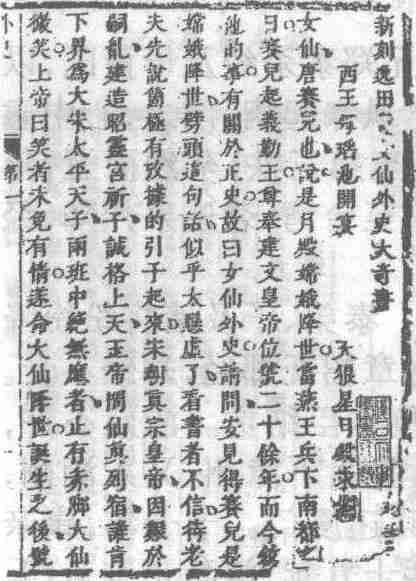 新刻逸田仙外史大奇書
西王母瑤池開宴　天狼星月殿求姻
女仙唐賽兒也說是月殿嫦娥降世當燕王兵下南都之
日賽兒起義勤王尊奉建文皇帝位號二十餘年而今敘
他的事有關於正史故曰女仙外史請問安見得賽兒是
嫦娥降世劈頭這句話似乎太懸虛了看書者不信待老
夫先說箇極有攷據的引子起來宋朝真宗皇帝因艱於
嗣胤建造昭靈宮祈子誠格上天玉帝問仙真列宿誰肯
下界為大宋太平天子兩班中絕無應者止有赤腳大仙
微笑上帝曰笑者未免有情遂命大仙降世誕生之後號
外史　第一